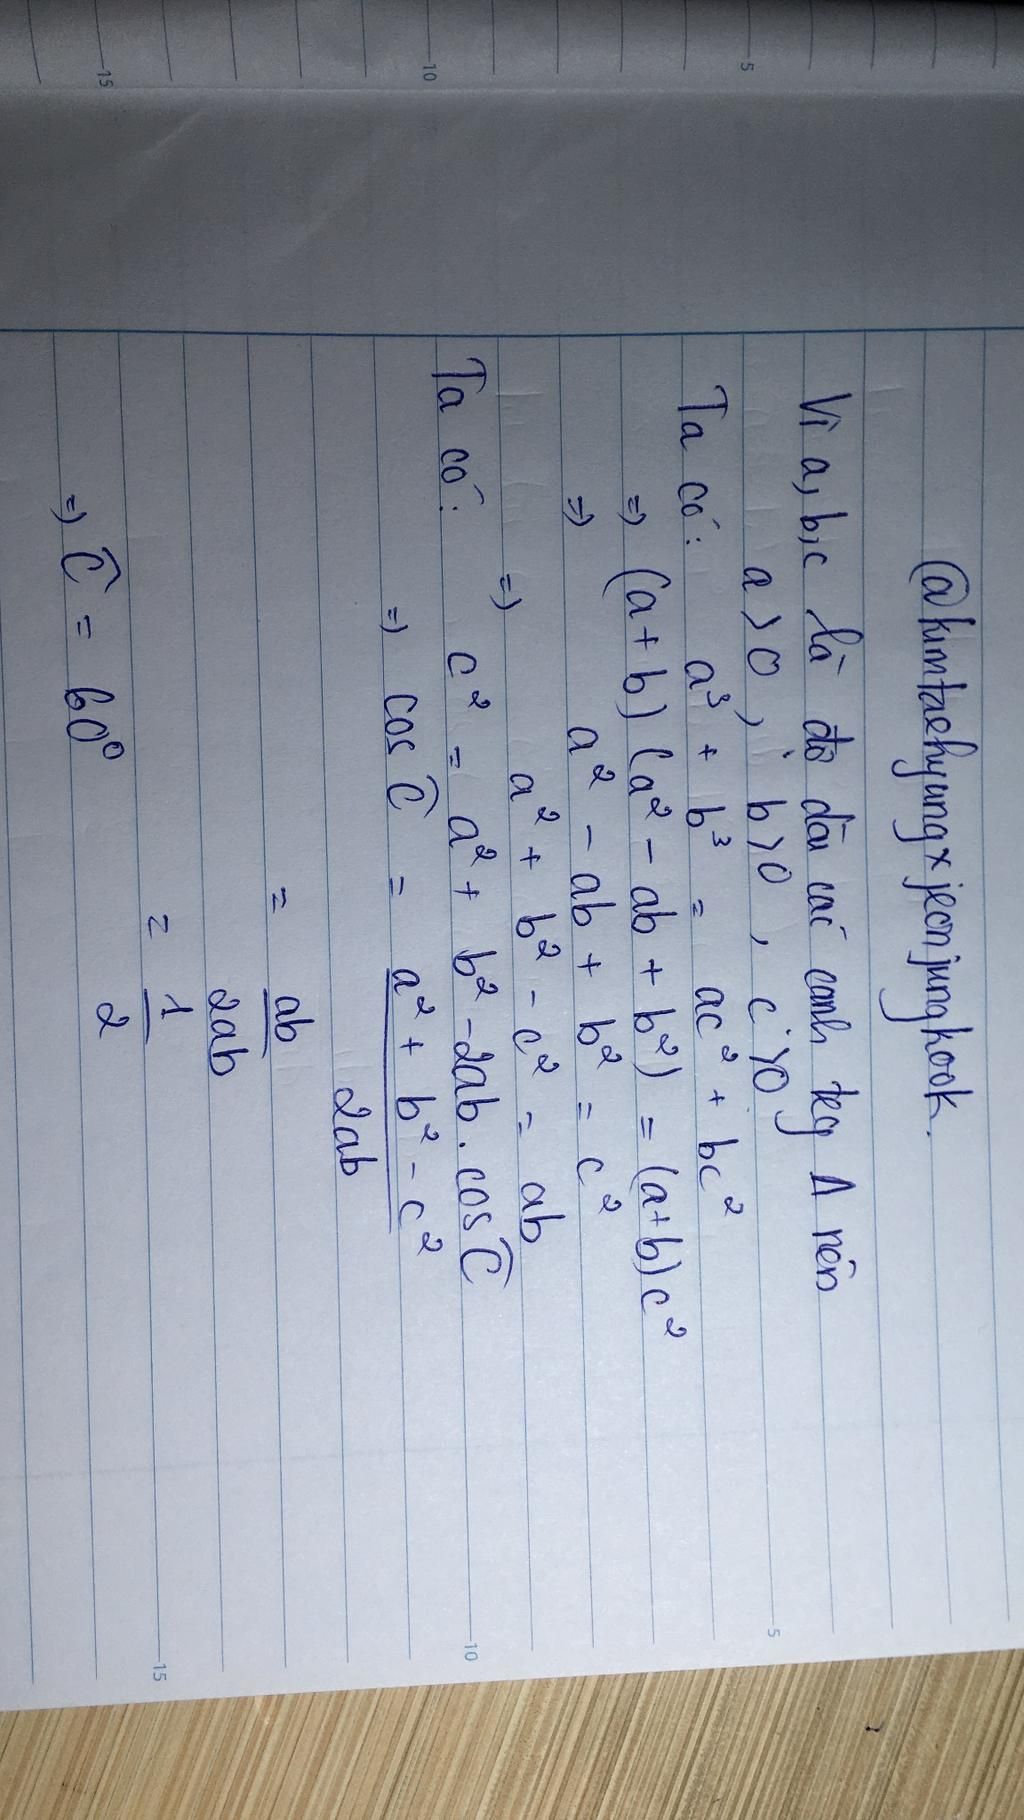 @kimtaehyungxjeonjungkook.
Vì a, b, c là độ dài các cạnh tcg Δ nên
a > 0, b > 0, c > 0
Ta có: a³ + b³ = ac² + bc²
=> (a + b) (a² - ab + b²) = (a+b) c²
=> a² - ab + b² = c²
=> a² + b² - c² = ab
Ta có: c² = a² + b² - 2ab. cos Ĉ
=> cos Ĉ = a² + b² - c²
2ab
= ab
2ab
= 1
2
=> Ĉ = 60°
5
10
15
5
10
15